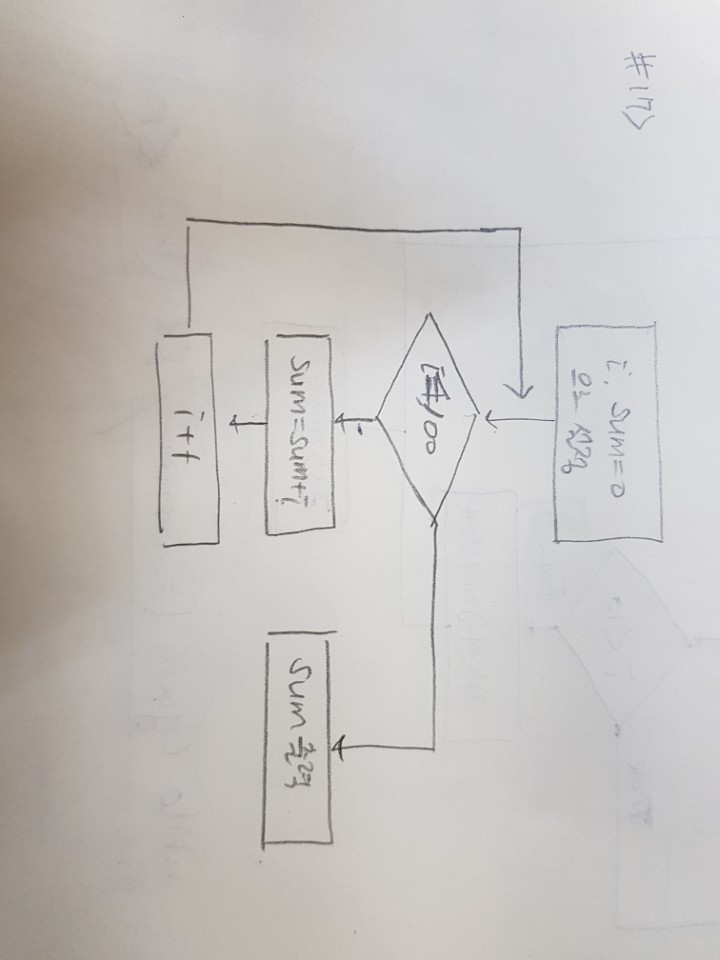 #17>
i, sum=0
으로 설정
sum=sum+i
i++
sum 출력